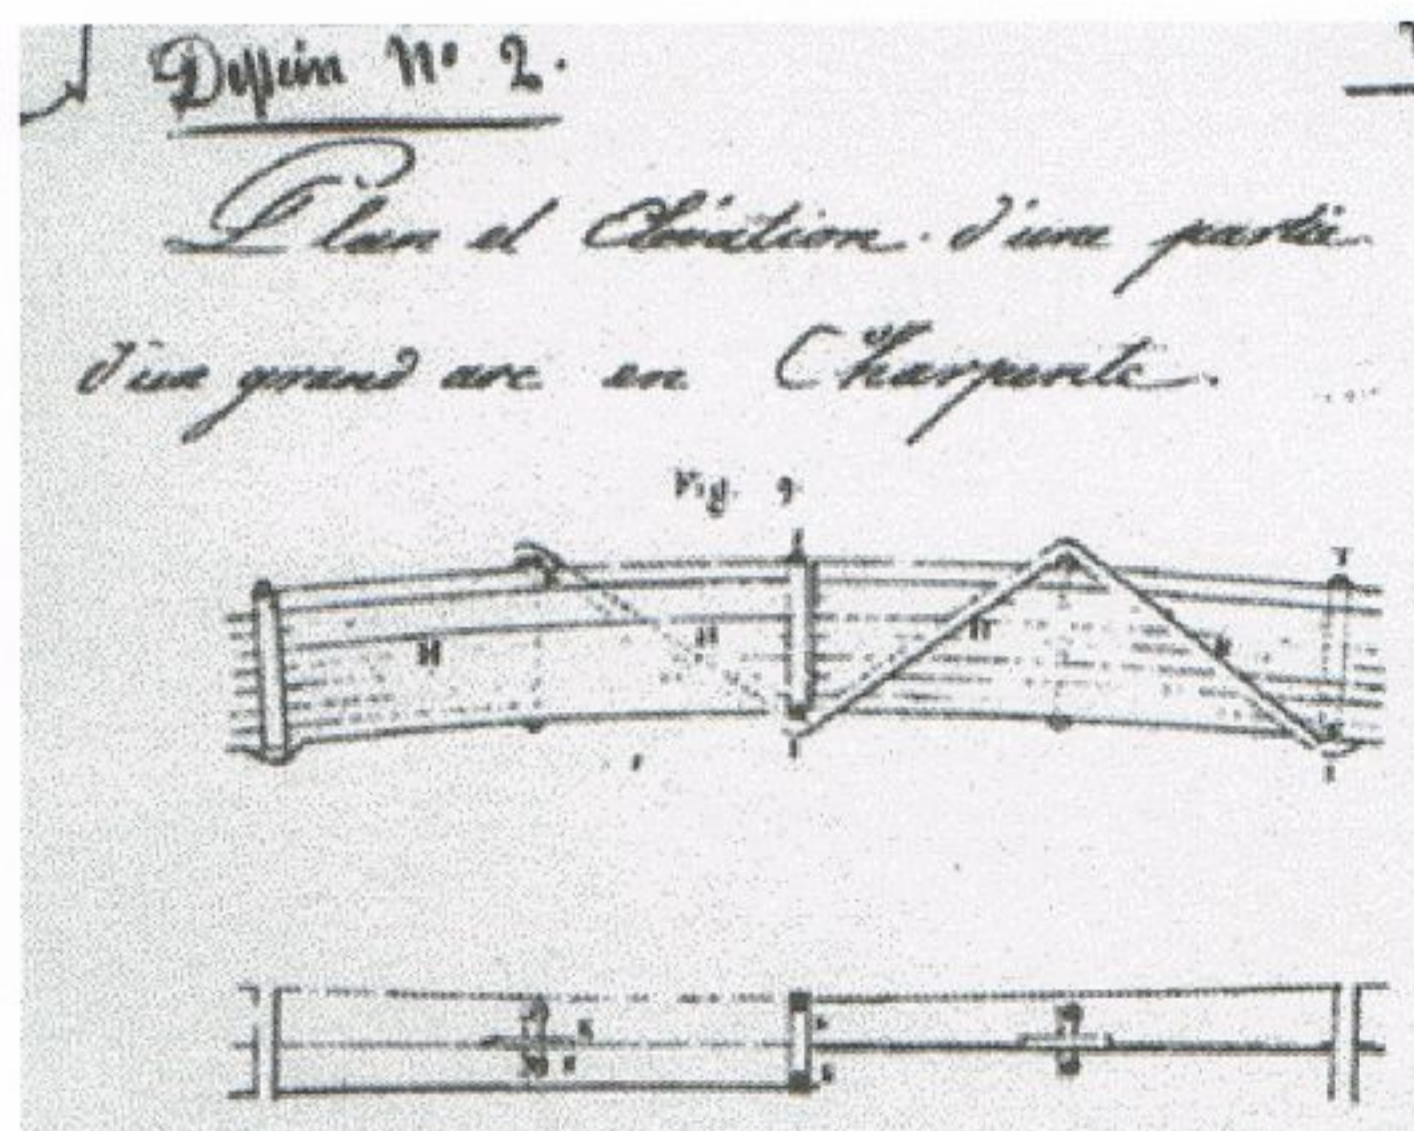 Dessein N° 2.
Plan et Elévation d'une partie
d'un grand arc en Charpente.
Fig. 9.
H H H